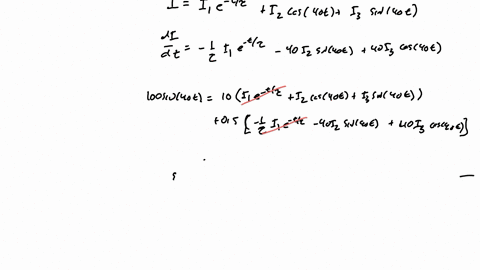 I = I₁e^{-t/τ} + I₂ cos(40t) + I₃ sin(40t)
dI/dt = -1/τ I₁e^{-t/τ} - 40I₂ sin(40t) + 40I₃ cos(40t)
100sin(40t) = 10 (I₁e^{-t/τ} + I₂ cos(40t) + I₃ sin(40t))
+0.5 [-1/τ I₁e^{-t/τ} - 40I₂ sin(40t) + 40I₃ cos(40t)]